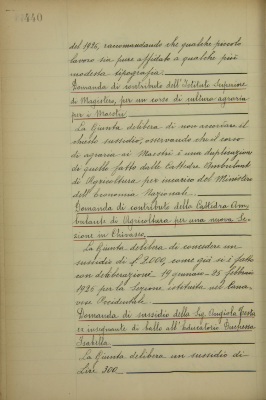 440
del 1925, raccomandando che qualche piccolo
lavoro sia pure affidato a qualche più
modesta tipografia.
Domanda di contributo dell'Istituto Superiore
di Magistero, per un corso di cultura agraria
per i Maestri
La Giunta delibera di non accordare il
chiesto sussidio, osservando che il corso
di agraria ai Maestri è una duplicazione
di quello fatto dalla Cattedra Ambulante
di Agricoltura per incarico del Ministero
dell'Economia Nazionale.
Domanda di contributo della Cattedra Am-
bulante di Agricoltura per una nuova Se-
zione in Chivasso
La Giunta delibera di concedere un
sussidio di £ 2.000, come già si è fatto
con deliberazioni 19 gennaio - 25 febbraio
1925 per la Sezione istituita nel Cana-
vese Occidentale
Domanda di sussidio della Sig. Angiola
insegnante di ballo all'Educatorio Duchessa
Isabella.
La Giunta delibera un sussidio di
Lire 300.